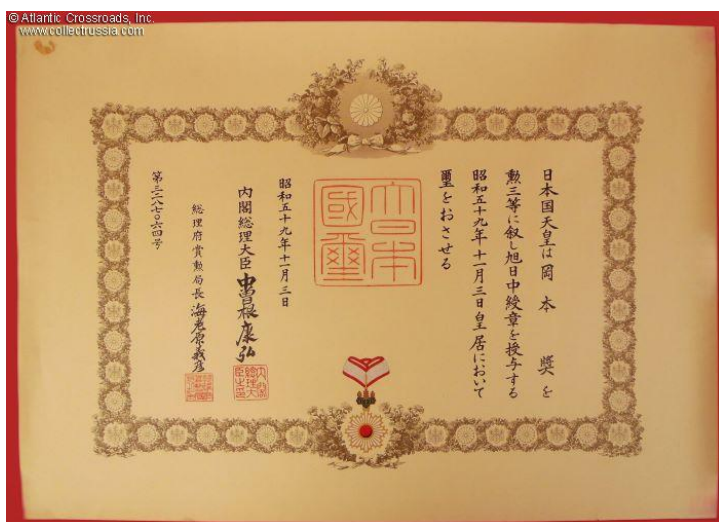 © Atlantic Crossroads, Inc.
www.collectrussia.com
日本国天皇は岡本 奨を
勲三等に叙し旭日中綬章を授与する
昭和五十九年十一月三日皇居において
璽をおさせる
大日本
國璽
昭和五十九年十一月三日
内閣総理大臣 中曽根康弘
総理府賞勲局長 海老原義彦
第三二八七〇六四号